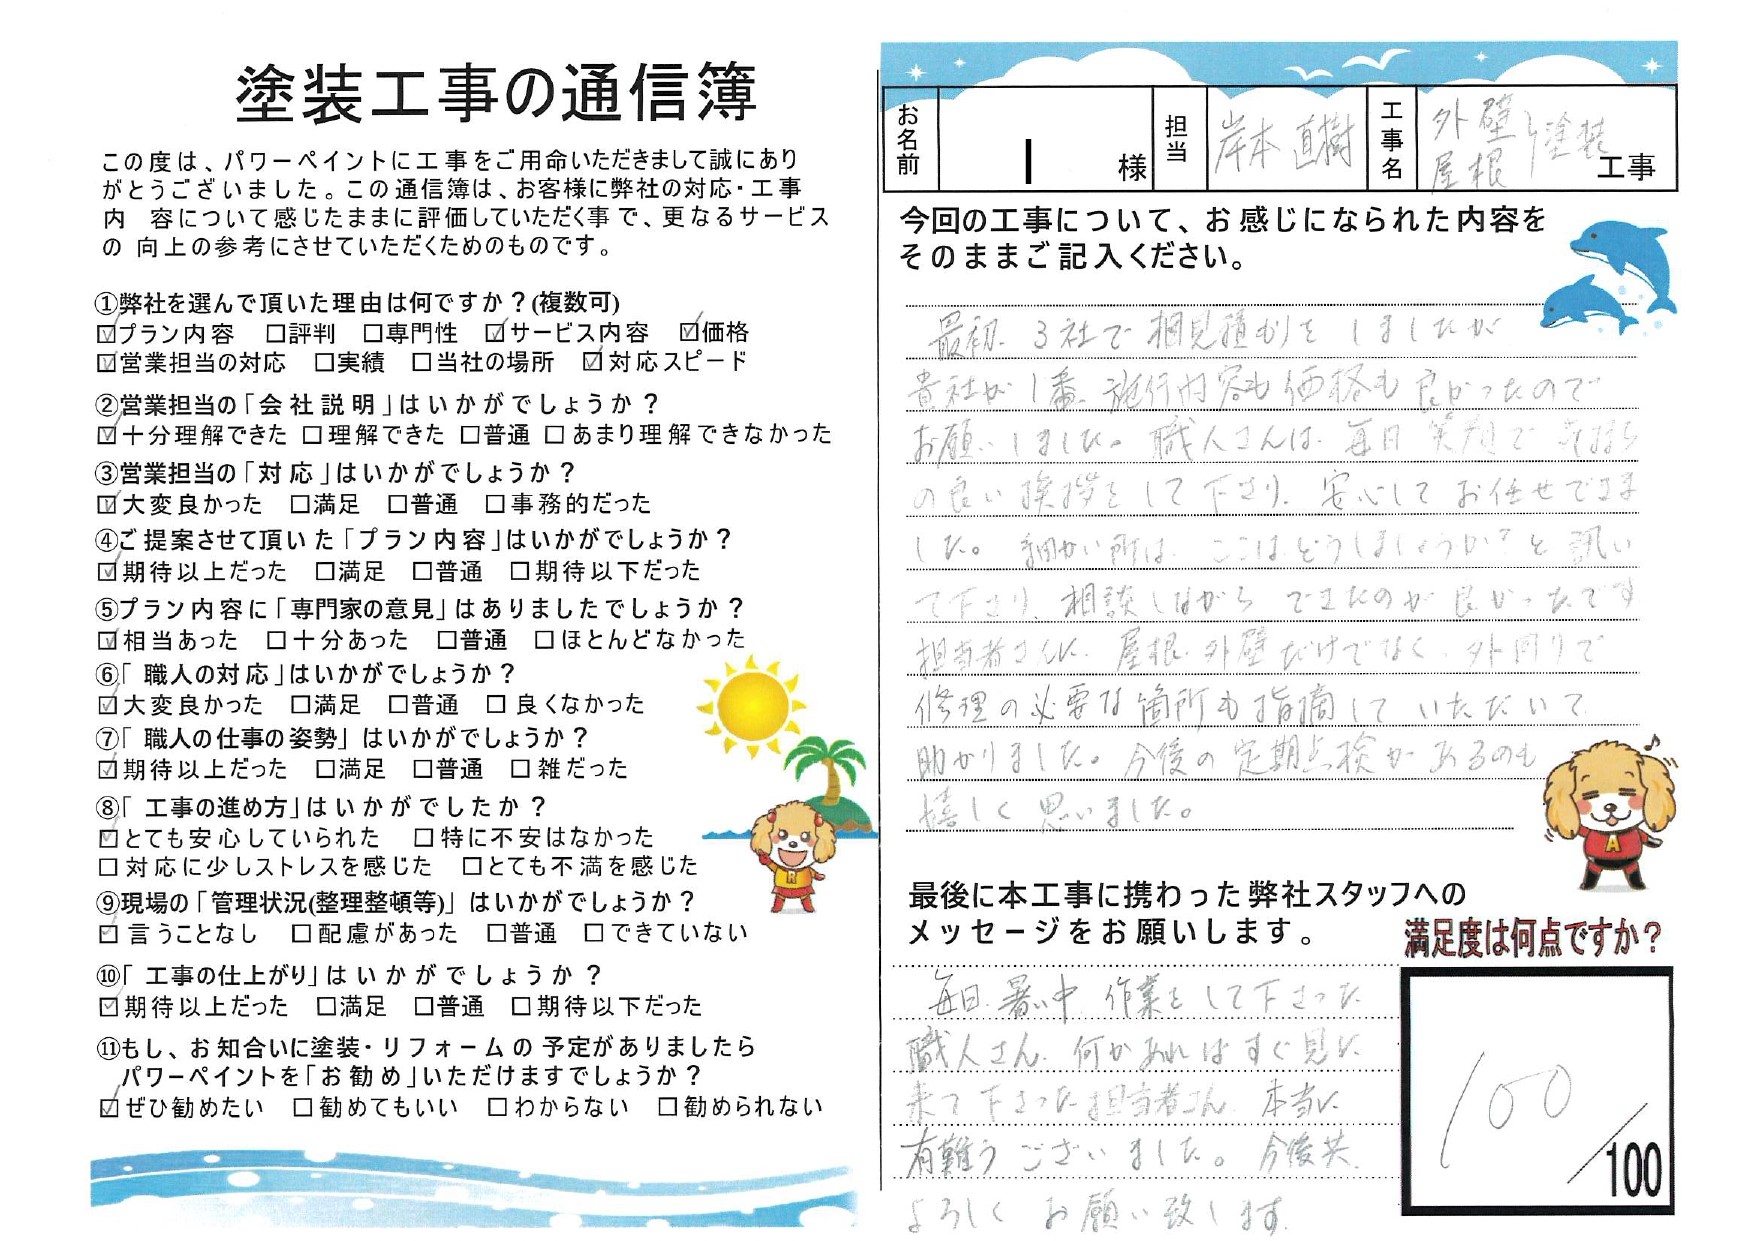 塗装工事の通信簿
この度は、パワーペイントに工事をご用命いただきまして誠にあり
がとうございました。この通信簿は、お客様に弊社の対応・工事
内　容について感じたままに評価していただく事で、更なるサービス
の 向上の参考にさせていただくためのものです。
①弊社を選んで頂いた理由は何ですか？(複数可)
☑プラン内容　☐評判　☐専門性　☑サービス内容　☑価格
☑営業担当の対応　☐実績　☐当社の場所　☑対応スピード
②営業担当の「会社説明」はいかがでしょうか？
☑十分理解できた ☐理解できた ☐普通 ☐あまり理解できなかった
③営業担当の「対応」はいかがでしょうか？
☑大変良かった　☐満足　☐普通　☐事務的だった
④ご提案させて頂いた「プラン内容」はいかがでしょうか？
☑期待以上だった　☐満足　☐普通　☐期待以下だった
⑤プラン内容に「専門家の意見」はありましたでしょうか？
☑相当あった　☐十分あった　☐普通　☐ほとんどなかった
⑥「職人の対応」はいかがでしょうか？
☑大変良かった　☐満足　☐普通　☐良くなかった
⑦「職人の仕事の姿勢」はいかがでしょうか？
☑期待以上だった　☐満足　☐普通　☐雑だった
⑧「工事の進め方」はいかがでしたか？
☑とても安心していられた　☐特に不安はなかった
☐対応に少しストレスを感じた　☐とても不満を感じた
⑨現場の「管理状況(整理整頓等)」はいかがでしょうか？
☑言うことなし　☐配慮があった　☐普通　☐できていない
⑩「工事の仕上がり」はいかがでしょうか？
☑期待以上だった　☐満足　☐普通　☐期待以下だった
⑪もし、お知合いに塗装・リフォームの予定がありましたら
パワーペイントを「お勧め」いただけますでしょうか？
☑ぜひ勧めたい　☐勧めてもいい　☐わからない　☐勧められない
お名前　I　様　担当　岸本 直樹　工事名　外壁 屋根 塗装 工事
今回の工事について、お感じになられた内容を
そのままご記入ください。
最初、3社で相見積りをしましたが
貴社が1番、施行内容も価格も良かったので
お願いしました。職人さんは、毎日笑顔で気持ち
の良い挨拶をして下さり、安心してお任せできま
した。細かい所は、ここはどうしましょうか?と訊い
て下さり、相談しながらできたのが良かったです
担当者さんに、屋根、外壁だけでなく、外回りで
修理の必要な箇所も指摘していただいて
助かりました。今後の定期点検があるのも
嬉しく思いました。
最後に本工事に携わった弊社スタッフへの
メッセージをお願いします。
満足度は何点ですか？
毎日、暑い中、作業をして下さった
職人さん、何かあればすぐ見に
来て下さった担当者さん、本当に
有難うございました。今後共、
よろしくお願い致します。
100/100
R
A